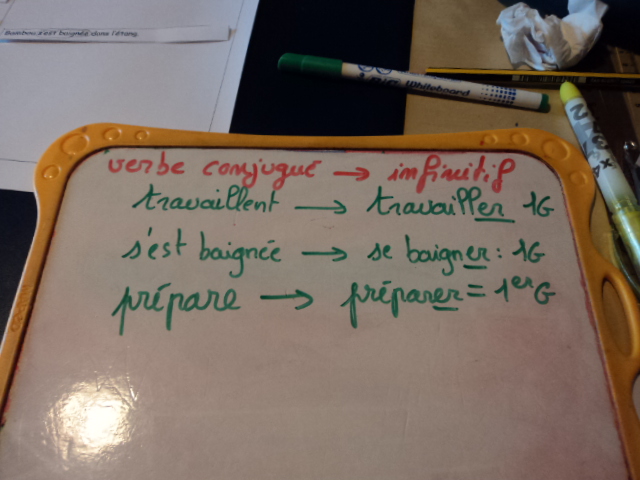 s'est baignée dans l'étang.
Whiteboard
verbe conjugué → infinitif
travaillent → travailler 1G
s'est baignée → se baigner : 1G
prépare → préparer = 1er G